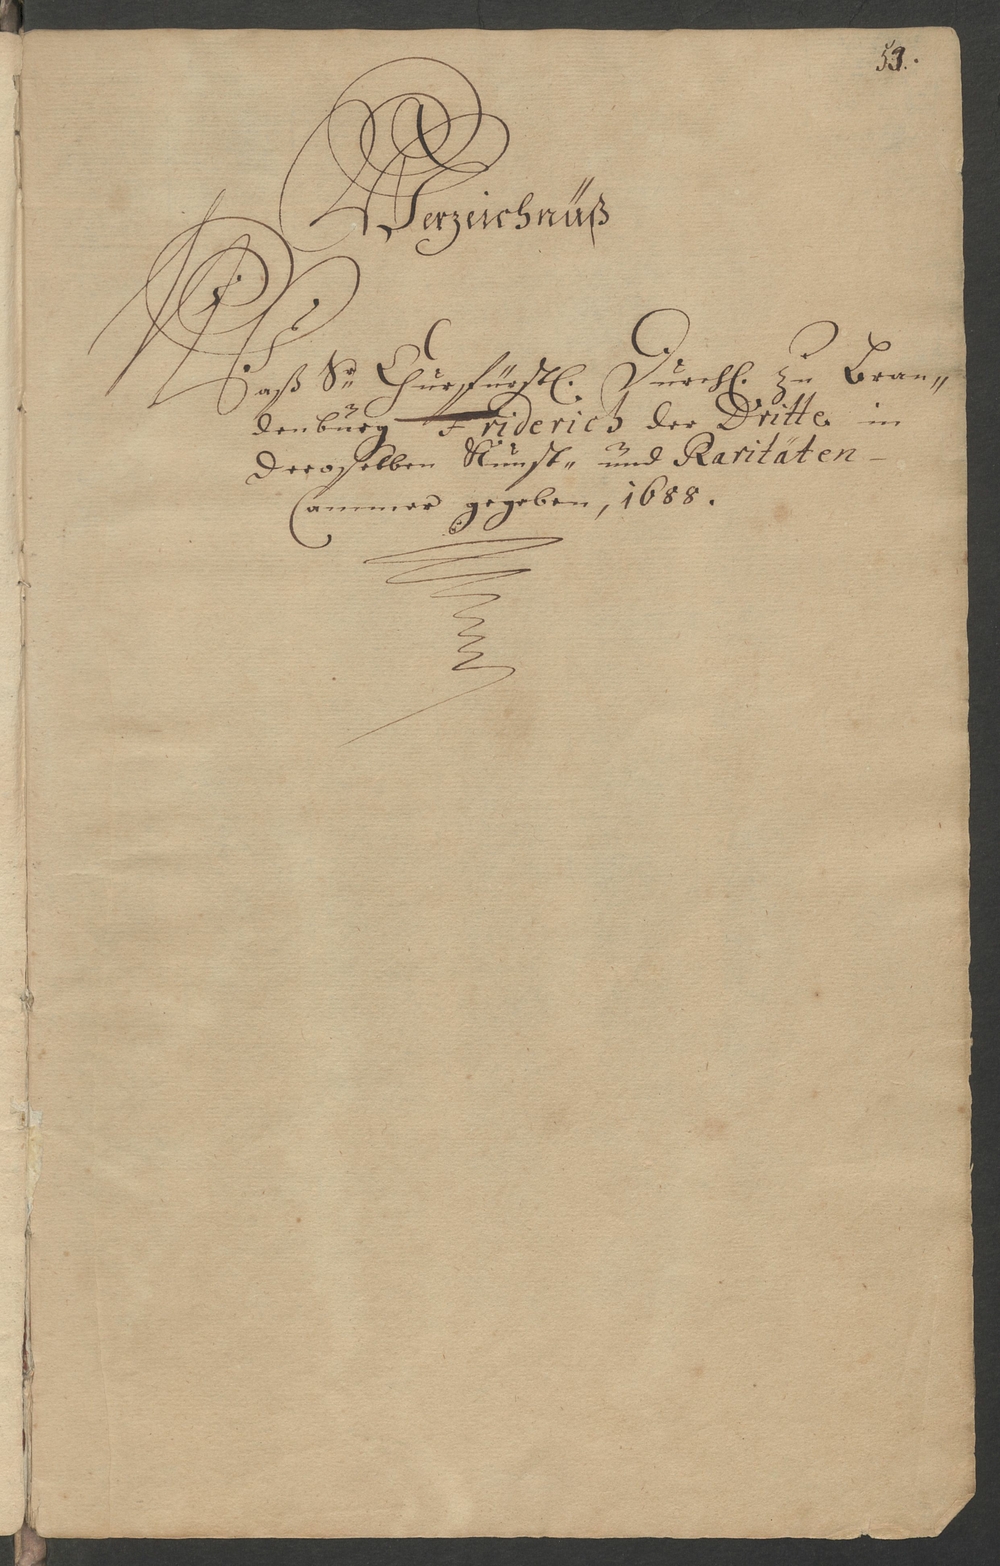 53.
Verzeichnüß
Waß Sr. Churfürstl. Durchl. zu Bran„
denburg Friderich der Dritte in
deroselben Kunst„ und Raritäten-
Cammer gegeben, 1688.